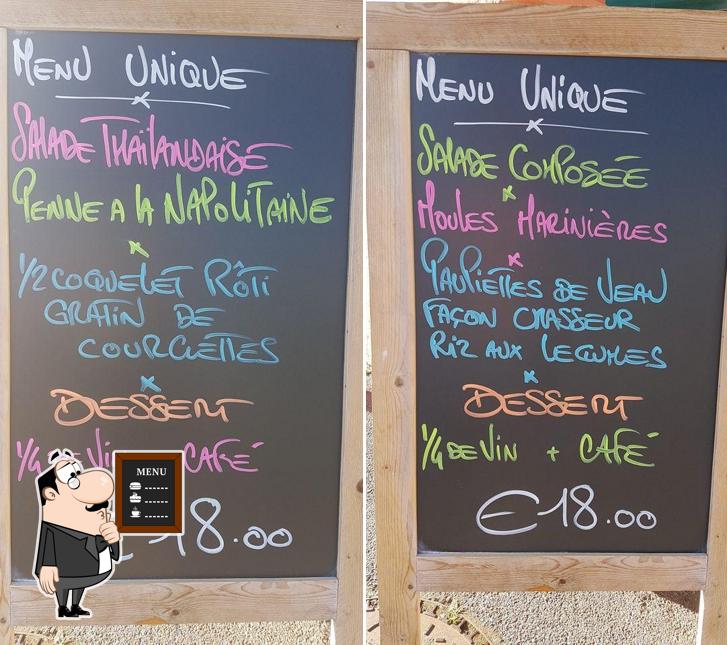 MENU UNIQUE
SALADE THAÏLANDAISE
PENNE A LA NAPOLITAINE
1/2 COQUELET RÔTI
GRATIN DE
COURGETTES
DESSERT
1/4 DE VIN CAFÉ
MENU
€18.00
MENU UNIQUE
SALADE COMPOSÉE
MOULES MARINIÈRES
PAUPIETTES DE VEAU
FAÇON CHASSEUR
RIZ AUX LEGUMES
DESSERT
1/4 DE VIN + CAFÉ
€18.00